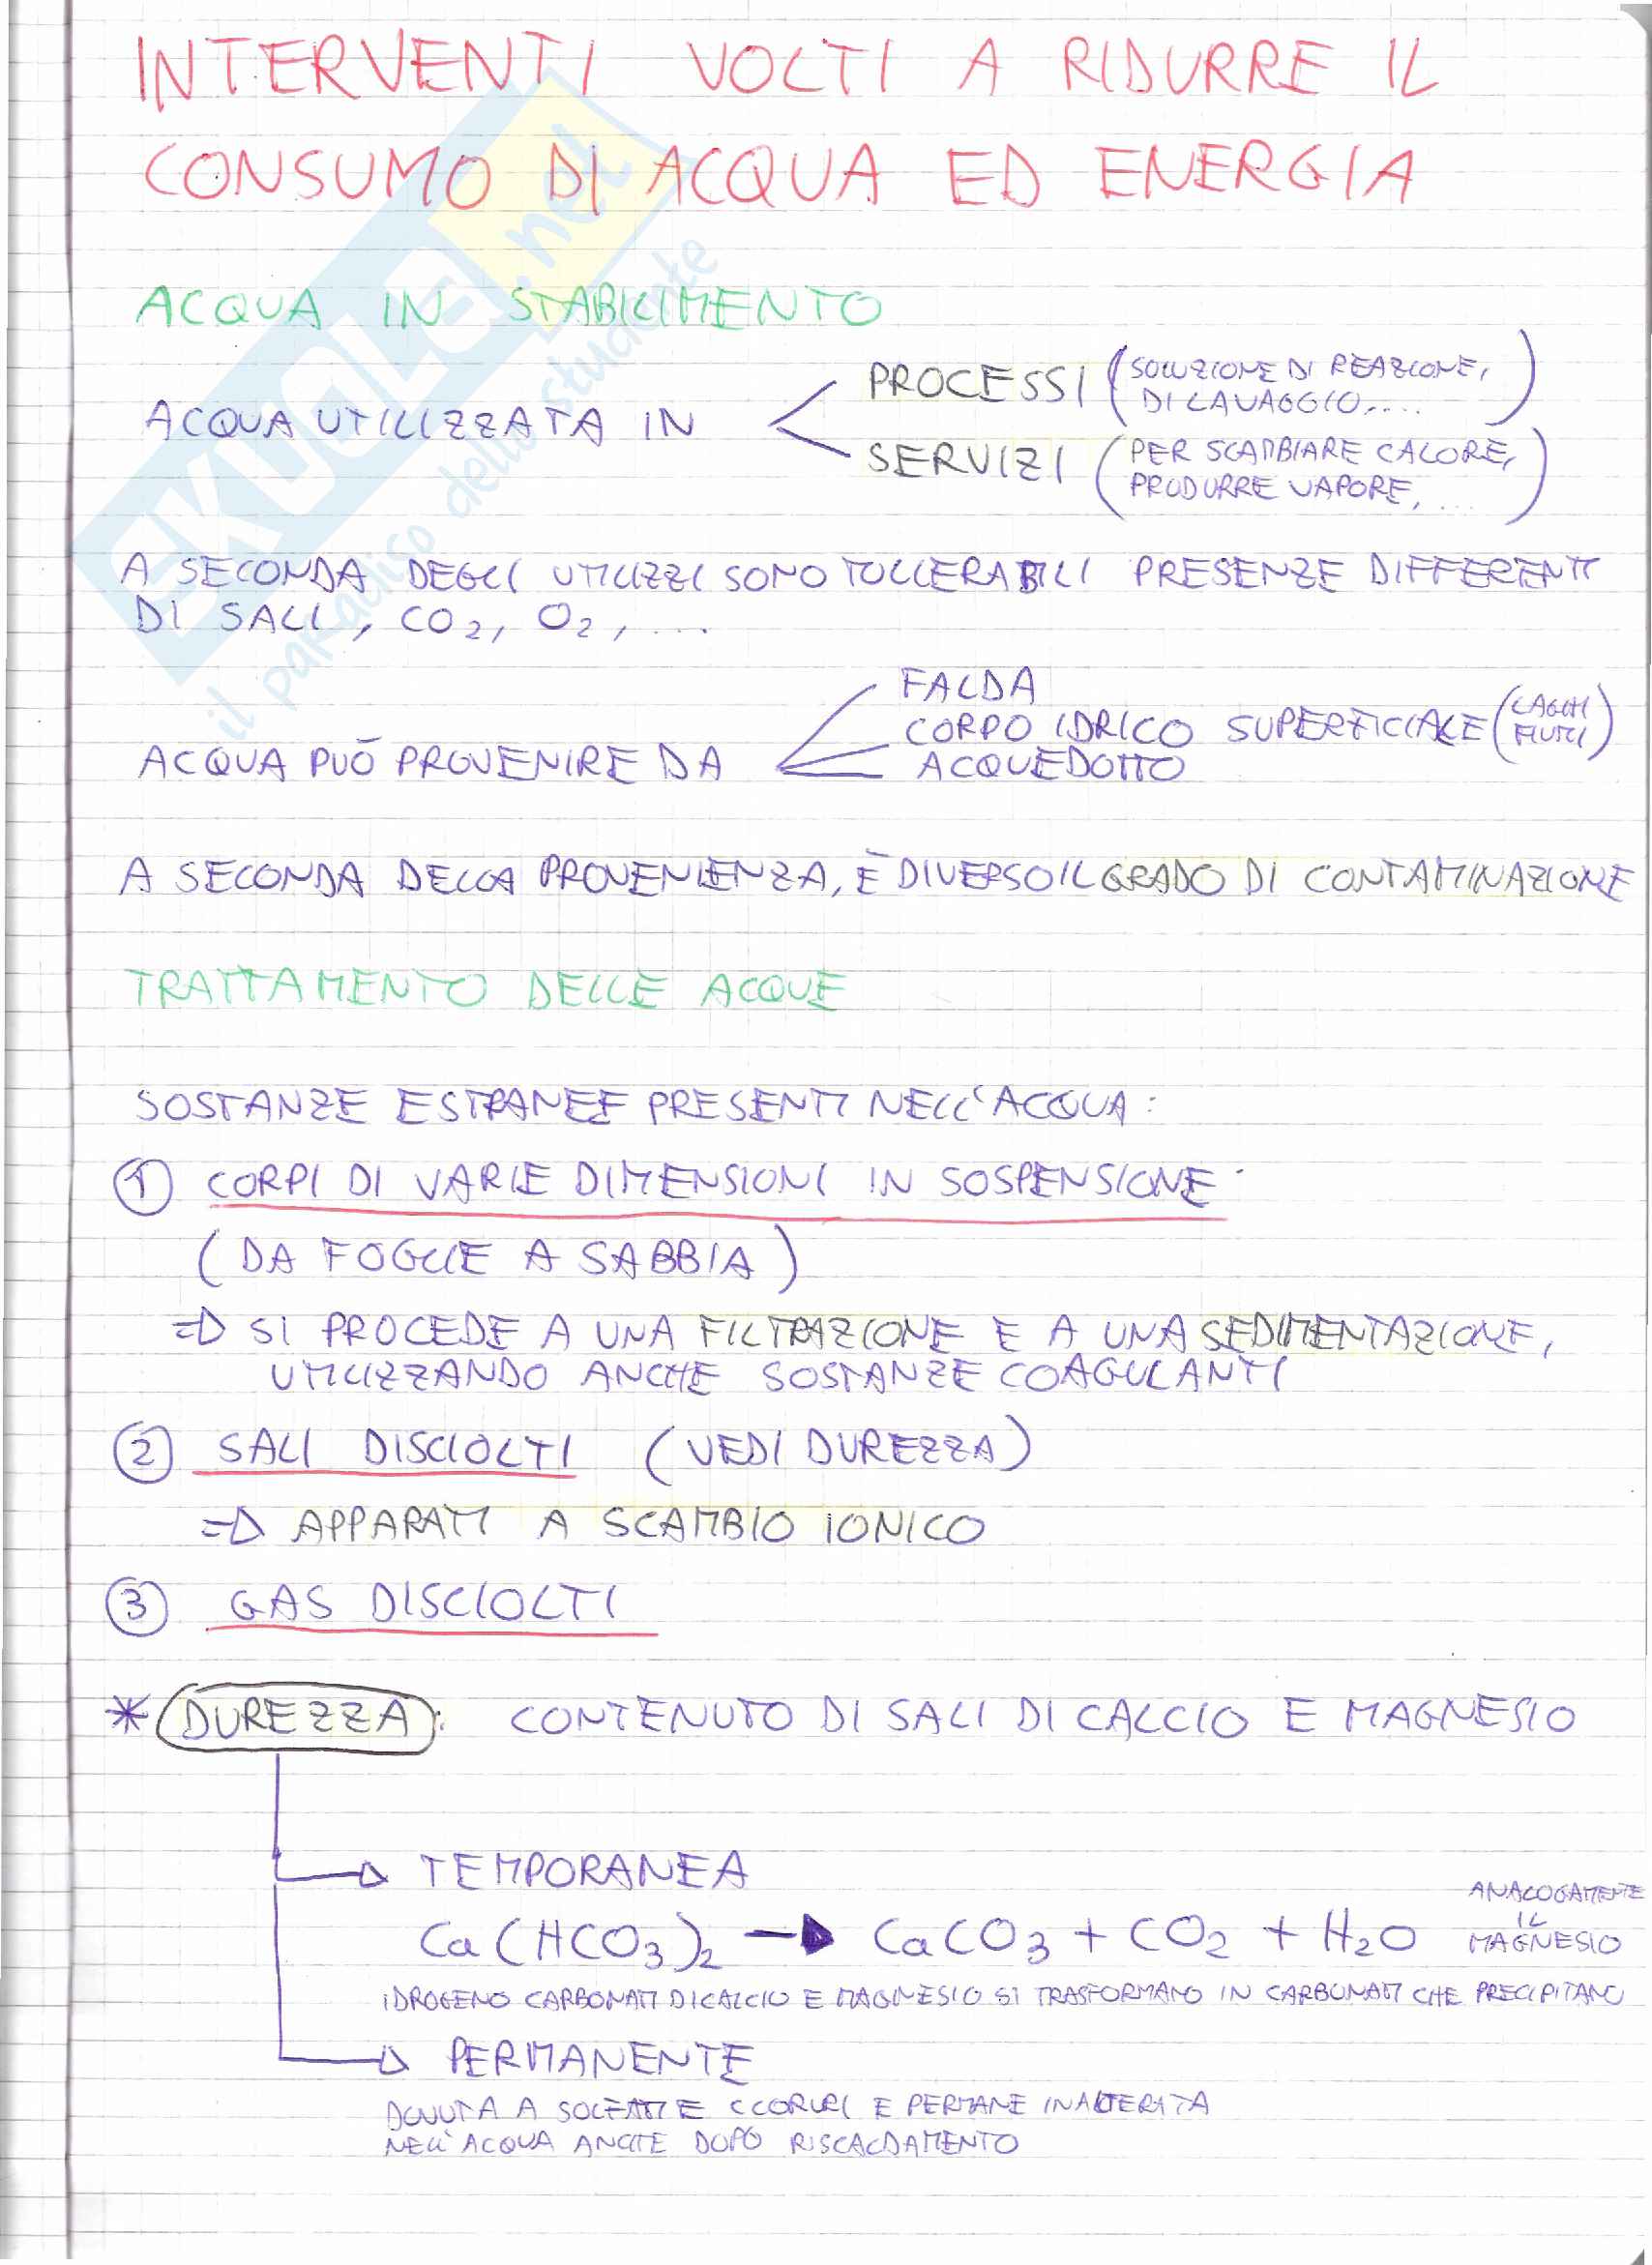 INTERVENTI VOLTI A RIDURRE IL
CONSUMO DI ACQUA ED ENERGIA
ACQUA IN STABILIMENTO
ACQUA UTILIZZATA IN
PROCESSI (SOLUZIONE DI REAZIONE,
DI LAVAGGIO,...)
SERVIZI (PER SCAMBIARE CALORE,
PRODURRE VAPORE, ...)
A SECONDA DEGLI UTILIZZI SONO TOLLERABILI PRESENZE DIFFERENTI
DI SALI, CO2, O2, ...
ACQUA PUÒ PROVENIRE DA
FALDA
CORPO IDRICO SUPERFICIALE (LAGHI
FIUMI)
ACQUEDOTTO
A SECONDA DELLA PROVENIENZA, È DIVERSO IL GRADO DI CONTAMINAZIONE
TRATTAMENTO DELLE ACQUE
SOSTANZE ESTRANEE PRESENTI NELL'ACQUA:
1 CORPI DI VARIE DIMENSIONI IN SOSPENSIONE:
(DA FOGLIE A SABBIA)
⇒ SI PROCEDE A UNA FILTRAZIONE E A UNA SEDIMENTAZIONE,
UTILIZZANDO ANCHE SOSTANZE COAGULANTI
2 SALI DISCIOLTI (VEDI DUREZZA)
⇒ APPARATI A SCAMBIO IONICO
3 GAS DISCIOLTI
* DUREZZA: CONTENUTO DI SALI DI CALCIO E MAGNESIO
→ TEMPORANEA
Ca(HCO3)2 → CaCO3 + CO2 + H2O
ANALOGAMENTE
IL
MAGNESIO
IDROGENO CARBONATI DI CALCIO E MAGNESIO SI TRASFORMANO IN CARBONATI CHE PRECIPITANO
→ PERMANENTE
DOVUTA A SOLFATI E CLORURI E PERMANE INALTERATA
NELL'ACQUA ANCHE DOPO RISCALDAMENTO
SKUOLA.net
il paradiso dello studente